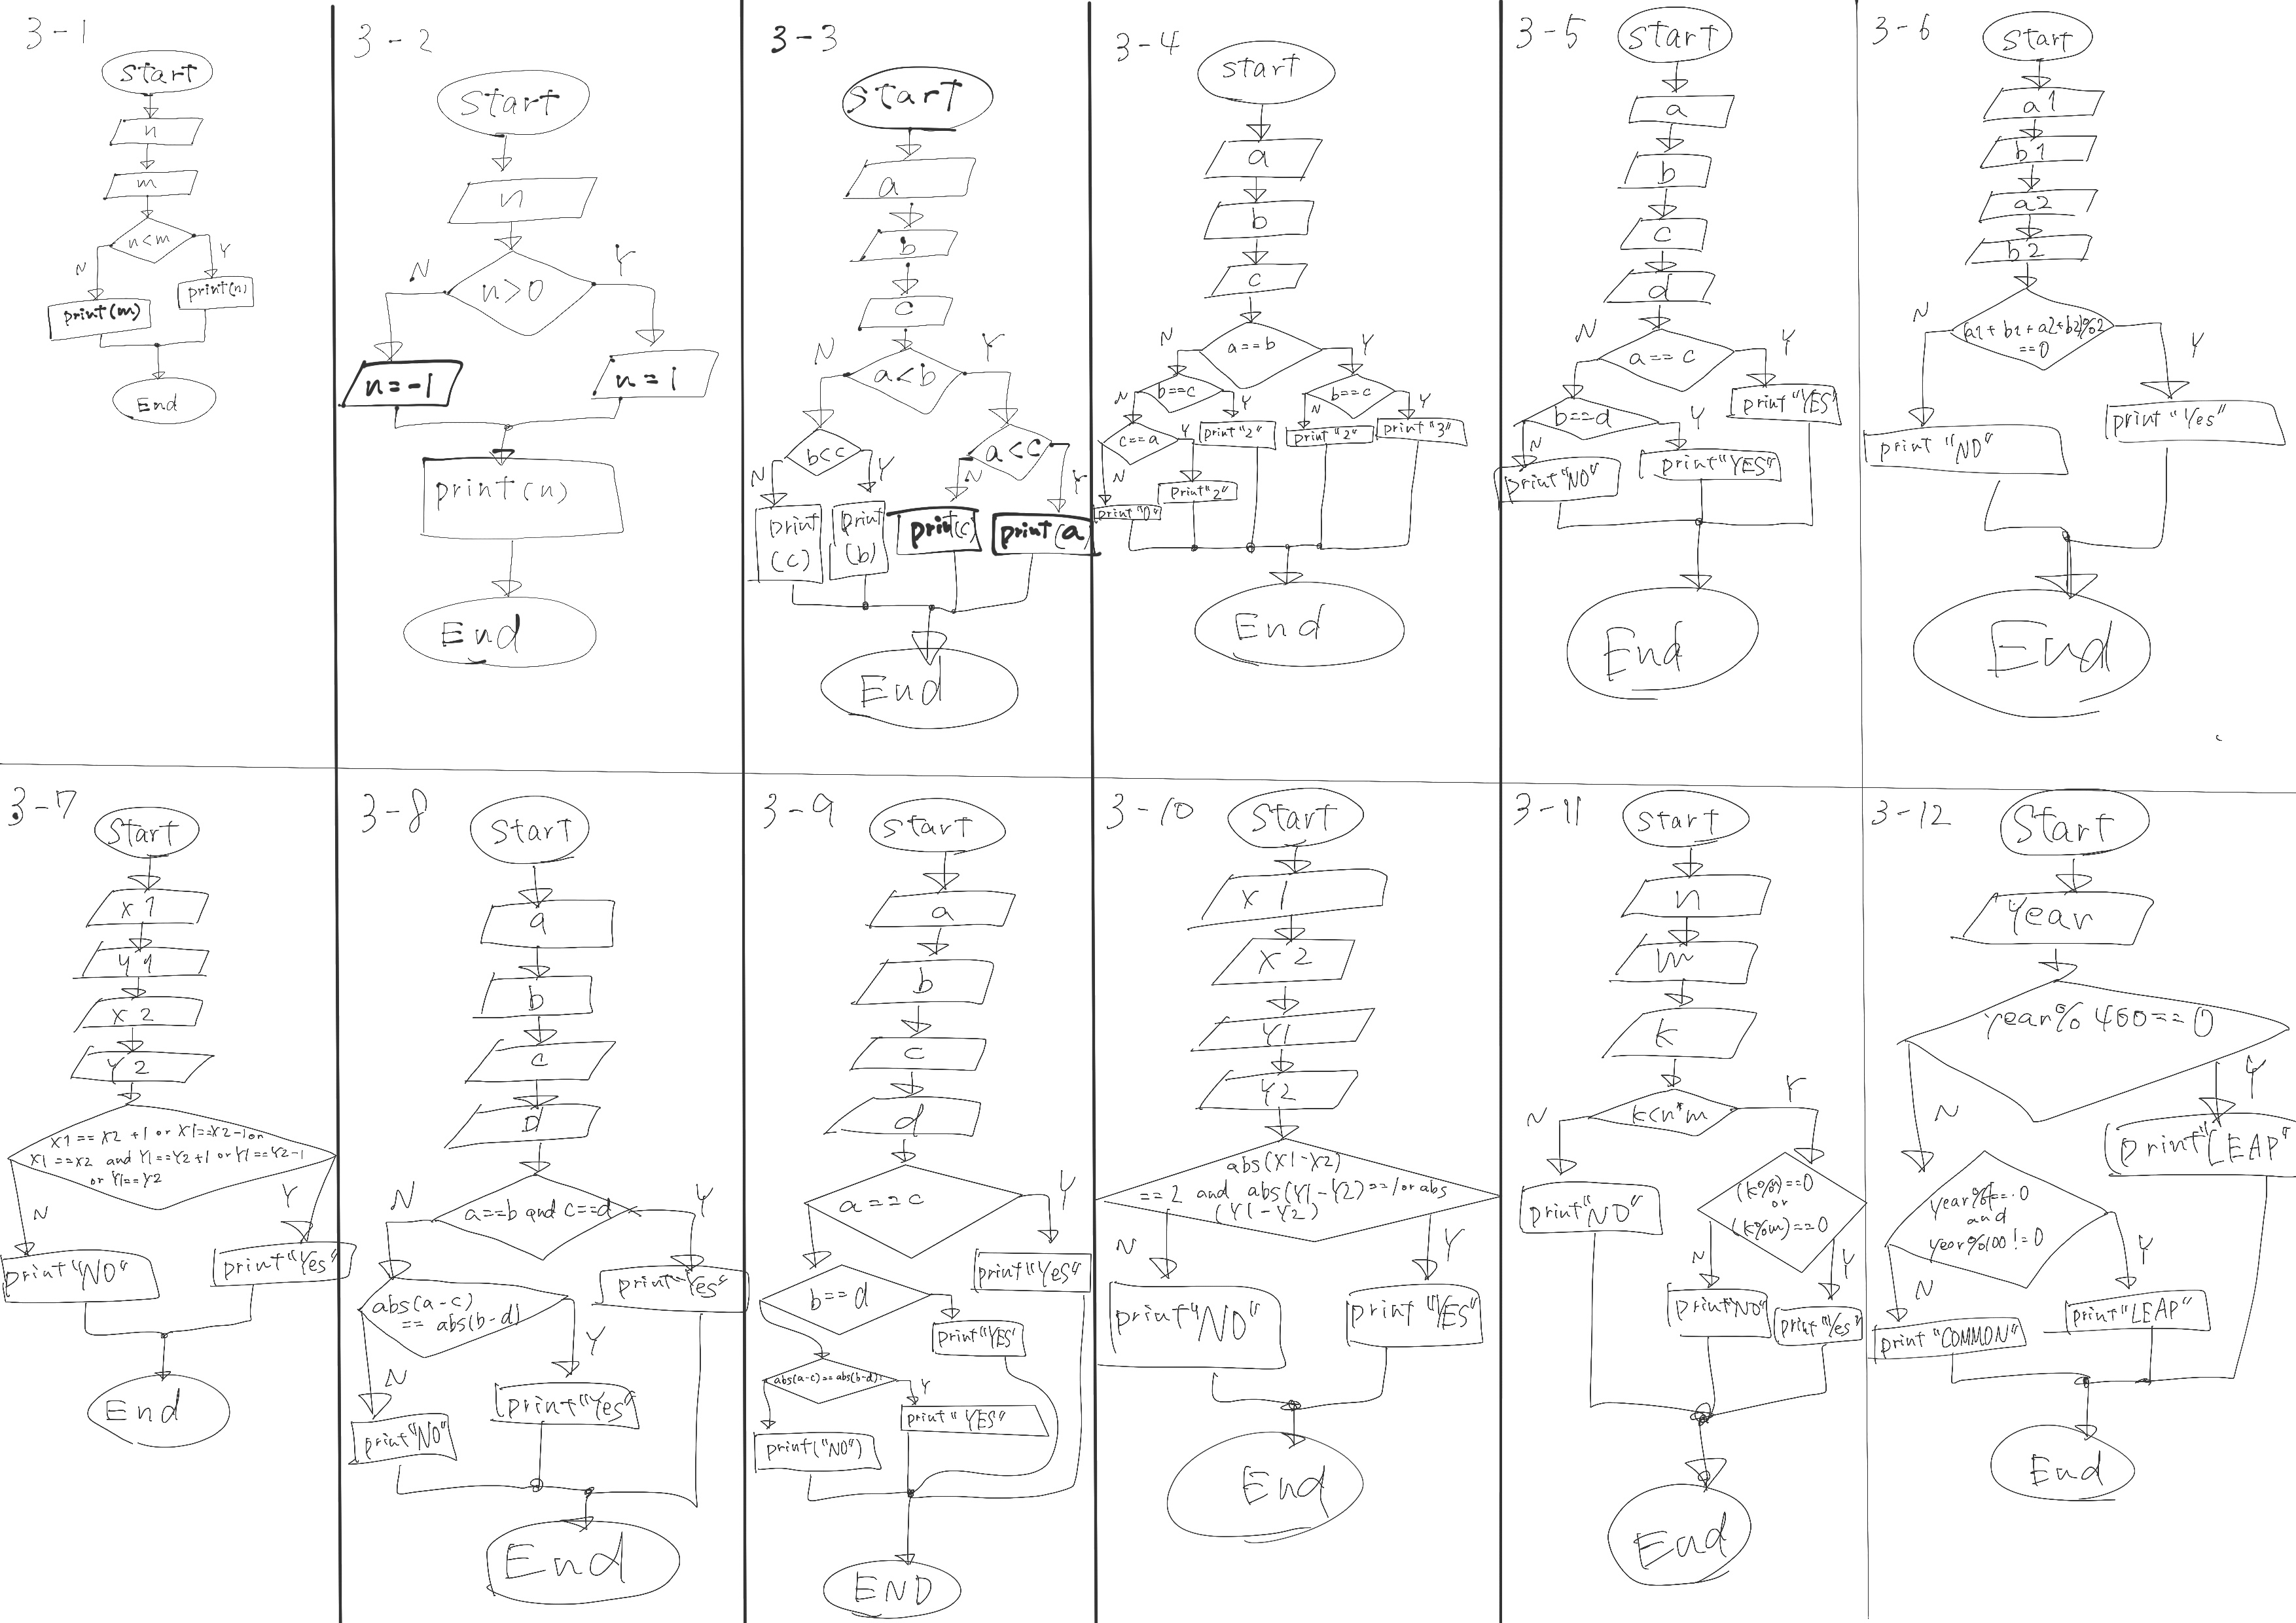 3-1
Start
n
m
n<m
N
Y
print(m)
print(n)
End
3-2
Start
n
n>0
N
Y
n=-1
n=1
print(n)
End
3-3
Start
a
b
c
a<b
N
Y
b<c
a<c
N
Y
N
Y
print
(c)
print
(b)
print(c)
print(a)
End
3-4
start
a
b
c
a==b
N
Y
b==c
b==c
N
Y
N
Y
c==a
Y
print"2"
print"2"
print"3"
N
print"2"
print"0"
End
3-5
Start
a
b
c
d
a==c
N
Y
b==d
print"YES"
N
Y
print"NO"
print"YES"
End
3-6
Start
a1
b1
a2
b2
(a1+b1+a2+b2)%2
==0
N
Y
print "NO"
print "Yes"
End
3-7
Start
x1
y1
x2
Y2
X1==X2+1 or X1==X2-1 or
X1==X2 and Y1==Y2+1 or Y1==Y2-1
or Y1==Y2
N
Y
print"NO"
print"Yes"
End
3-8
Start
a
b
c
D
a==b and c==d
N
Y
abs(a-c)
== abs(b-d)
print"Yes"
N
Y
print"NO"
print"Yes"
End
3-9
Start
a
b
c
d
a==c
Y
print"Yes"
b==d
print"YES"
abs(a-c)==abs(b-d)
Y
print"YES"
print("NO")
END
3-10
Start
x1
x2
Y1
Y2
abs(X1-X2)
==2 and abs(Y1-Y2)==1 or abs
(Y1-Y2)
N
Y
print"NO"
print "YES"
End
3-11
Start
n
m
k
k<n*m
N
Y
print"NO"
(k%n)==0
or
(k%m)==0
N
Y
print"NO"
print"Yes"
End
3-12
Start
Year
year%400==0
N
Y
print"LEAP"
and
year%100!=0
N
Y
print "COMMON"
print"LEAP"
End